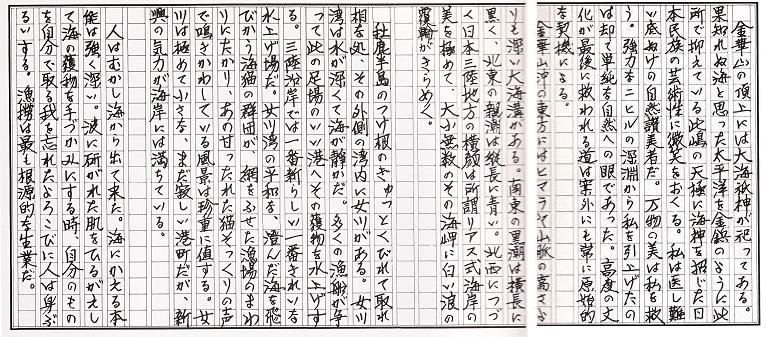 金華山の頂上には大海祇神が祀ってある。
果知れぬ海と思った太平洋を金鋲のように此
所で抑えている此嶋の天極に海神を招じた日
本民族の芸術性に微笑をおくる。私は医し難
い底ぬけの自然讃美者だ。万物の美は私を救
う。強力なニヒルの深淵から私を引上げたの
は却て単純な自然への眼であった。高度の文
化が最後に救われる道は案外にも常に原始的
な契機による。
金華山沖の東方にはヒマラヤ山脈の高さよ
りも深い大海溝がある。南東の黒潮は横長に
黒く、北東の親潮は縦長に青い。北西につづ
く日本三陸地方の横顔は所謂リアス式海岸の
美を極めて、大小無数のその海岬に白い浪の
覆輪がきらめく。
牡鹿半島のつけ根のぎゅっとくびれて取れ
相な処、その外側の湾内に女川がある。女川
湾は水が深くて海が静かだ。多くの漁船が争
って此の足場のいい港へその獲物を水上げす
る。三陸沿岸では一番新らしい一番きれいな
水上げ場だ。女川湾の平和な、澄んだ海を飛
びかう海猫の群団が、網をふせた漁場のまわ
りにたかり、あの甘ったれた猫そっくりの声
で鳴きかわしている風景は珍重に値する。女
川は極めて小さな、まだ寂しい港町だが、新
興の気力が海岸には満ちている。
人はむかし海から出て来た。海にかえる本
能は強く深い。波に研がれた肌をひるがえし
て海の獲物を手づかみにする時、自分のもの
を自分で取る我を忘れたよろこびに人は身ぶ
るいする。漁撈は最も根源的な生業だ。